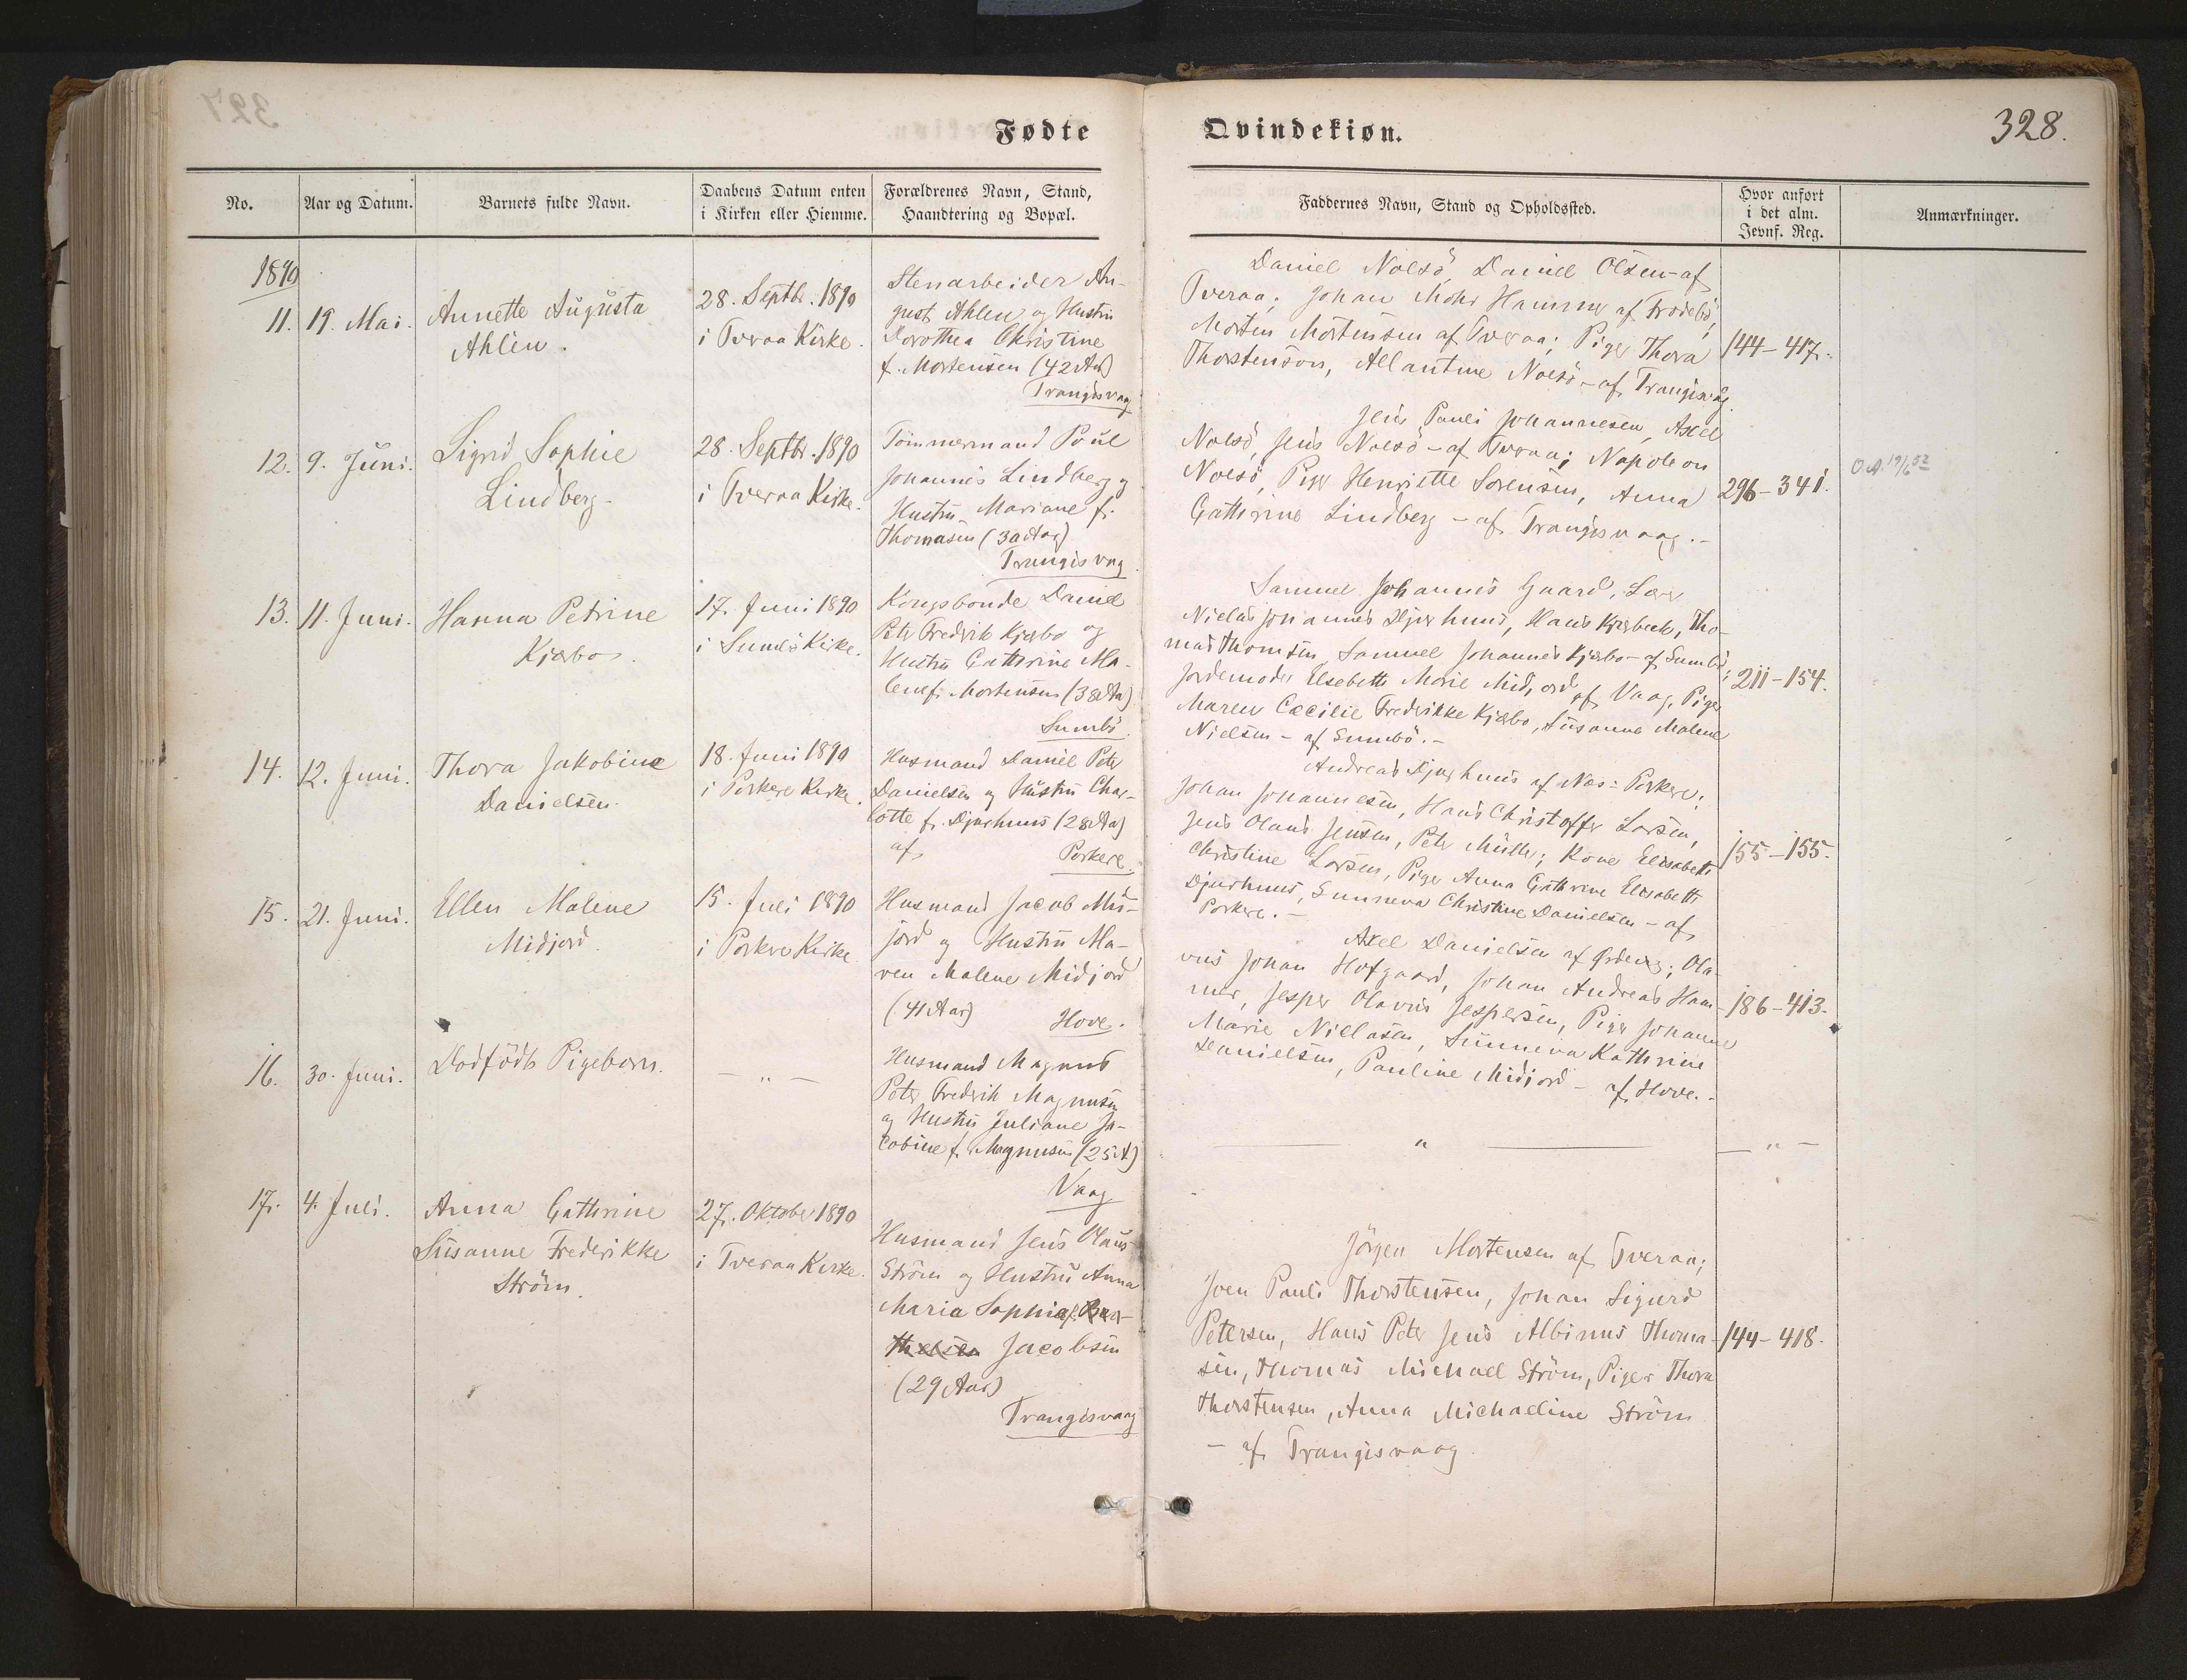 Fødte
Qvindekiøn.
328.
No.
Aar og Datum.
Barnets fulde Navn.
Daabens Datum enten
i Kirken eller Hiemme.
Forældrenes Navn, Stand,
Haandtering og Bopæl.
Faddernes Navn, Stand og Opholdssted.
Hvor anført
i det alm.
Jevnf. Reg.
Anmærkninger.
1890
11.
19. Mai.
Annette Augusta
Ahlin.
28. Septbr. 1890
i Tveraa Kirke.
Stenarbeider Au-
gust Ahlen og Hustru
Dorothea Christine
f. Mortensen (42 Aar)
Trangisvaag
Daniel Nolsö, Daniel Olsen - af
Tveraa; Johan Mohr Hammer af Frodebö,
Morten Mortensen af Tveraa; Piger Thora
Thorstenson, Allantine Nolsö - af Trangisvag.
144-417.
12.
9. Juni.
Sigrid Sophie
Lindberg.
28. Septbr. 1890
i Tveraa Kirke.
Tömmermand Poul
Johannes Lindberg og
Hustru Mariane f.
Thomasen (30 Aar)
Trangisvag.
Jens Pauli Johannesen, Axel
Nolsö, Jens Nolsö - af Tveraa; Napoleon
Nolsö, Piger Henriette Sorensen, Anna
Cathrine Lindberg - af Trangisvaag.-
296-341.
O.A. 19/6 52
13.
11. Juni.
Hanna Petrine
Kjærbo.
17. Juni 1890
i Sumbö Kirke.
Kongsbonde Daniel
Peter Fredrik Kjærbo og
Hustru Cathrine Ma-
lene f. Mortensen (38 Aar)
Sumbö.
Samuel Johannes Gaard, Lærer
Nielas Johannes Djurhuus, Hans Kjærbeck, Tho-
mas Thomsen, Samuel Johannes Kjærbo - af Sumbö;
Jordemoder Elsebeth Marie Midjord af Vaag, Piger
Maren Cæcilie Fredrikke Kjærbo, Susanne Malene
Nielsen - af Sumbö.-
211-154.
14.
12. Juni.
Thora Jakobine
Danielsen.
18. Juni 1890
i Porkere Kirke.
Husmand Daniel Peter
Danielsen og Hustru Char-
lotte f. Djurhuus (28 Aar)
af Porkere.
Andreas Djurhuus af Næs: Porkere;
Johan Johannesen, Hans Christoffer Larsen,
Jens Olaus Jensen, Peter Müller; Kone Elisabeth
Christine Larsen, Piger Anna Cathrine Elisabeth
Djurhuus, Sunneva Christine Danielsen - af
Porkere.-
155-155.
15.
21. Juni.
Ellen Malene
Midjord.
15. Juli 1890
i Porkere Kirke
Husmand Jacob Mid-
jord og Hustru Ma-
ren Malene Midjord
(41 Aar)
Hove.
Axel Danielsen af Ördevig; Ola-
vus Johan Hofgaard, Johan Andreas Ham-
mer, Jesper Olavus Jespersen, Piger Johanne
Marie Niclasen, Sunneva Kathrine
Danielsen, Pauline Midjord - af Hove.-
186-413.
16.
30. Juni.
Dödfödt Pigebarn.
— „ —
Husmand Magnus
Peter Fredrik Magnusen
og Hustru Juliane Ja-
cobine f. Magnusen (25 A)
Vaag
— „ —
— „ —
17.
4. Juli.
Anna Cathrine
Susanne Frederikke
Ström.
27. Oktober 1890
i Tveraa Kirke.
Husmand Jens Olaus
Ström og Hustru Anna
Maria Sophia f. Bar-
thelsen Jacobsen
(29 Aar)
Trangisvaag
Jörgen Mortensen af Tveraa;
Joen Pauli Thorstensen, Johan Sigurd
Petersen, Hans Peter Jens Albinus Thoma-
sen, Thomas Michael Ström, Piger Thora
Thorstensen, Anna Michaeline Ström
- af Trangisvaag.
144-418.